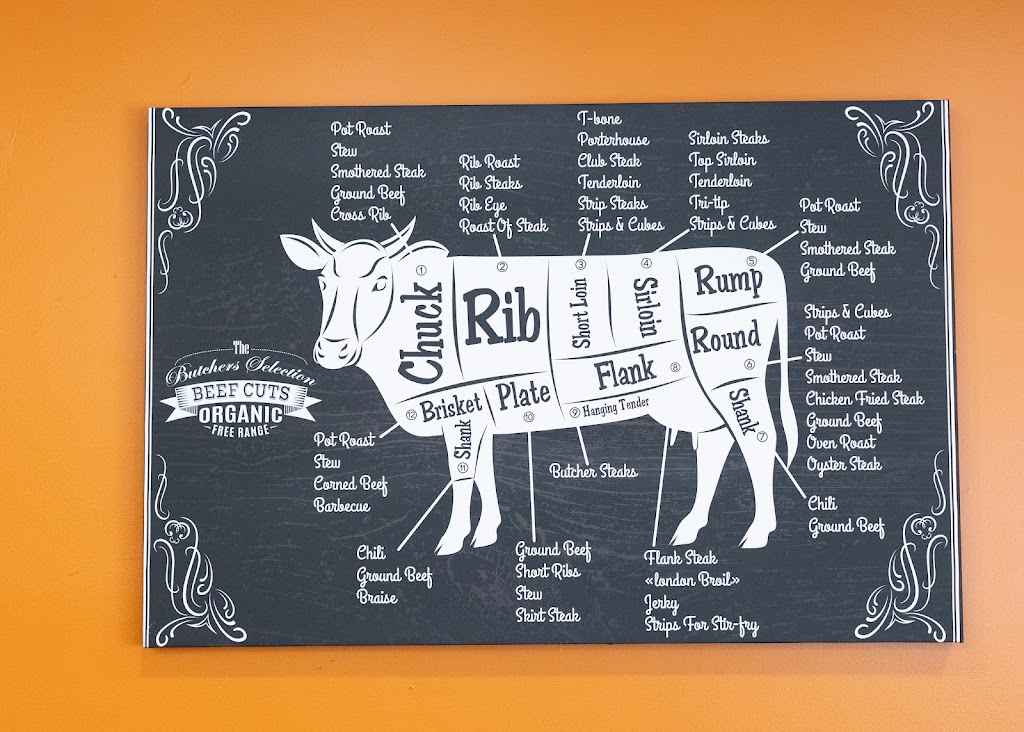 Pot Roast
Stew
Smothered Steak
Ground Beef
Cross Rib
Rib Roast
Rib Steaks
Rib Eye
Roast Of Steak
T-bone
Porterhouse
Club Steak
Tenderloin
Strip Steaks
Strips & Cubes
Sirloin Steaks
Top Sirloin
Tenderloin
Tri-tip
Strips & Cubes
Pot Roast
Stew
Smothered Steak
Ground Beef
① Chuck
② Rib
③ Short Loin
④ Sirloin
⑤ Rump
Round ⑥
Flank ⑧
⑨ Hanging Tender
Plate ⑩
Brisket ⑫
Shank ⑪
Shank ⑦
The
Butchers Selection
BEEF CUTS
ORGANIC
FREE RANGE
Strips & Cubes
Pot Roast
Stew
Smothered Steak
Chicken Fried Steak
Ground Beef
Oven Roast
Oyster Steak
Pot Roast
Stew
Corned Beef
Barbecue
Butcher Steaks
Chili
Ground Beef
Chili
Ground Beef
Braise
Ground Beef
Short Ribs
Stew
Skirt Steak
Flank Steak
«london Broil»
Jerky
Strips For Stir-fry